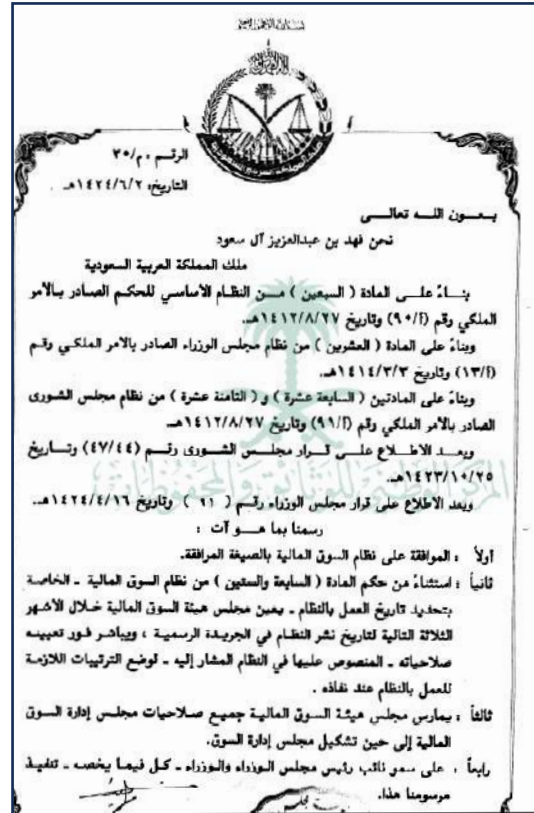 الرقم : م/٣٠
التاريخ: ١٤٢٤/٦/٢هـ
بعون الله تعالى
نحن فهد بن عبدالعزيز آل سعود
ملك المملكة العربية السعودية
بناءً على المادة ( السبعين ) من النظام الأساسي للحكم الصادر بالأمر
الملكي رقم (أ/٩٠) وتاريخ ١٤١٢/٨/٢٧هـ.
وبناءً على المادة ( العشرين ) من نظام مجلس الوزراء الصادر بالأمر الملكي رقم
(أ/١٣) وتاريخ ١٤١٤/٣/٣هـ.
وبناءً على المادتين ( السابعة عشرة ) و ( الثامنة عشرة ) من نظام مجلس الشورى
الصادر بالأمر الملكي رقم (أ/٩١) وتاريخ ١٤١٢/٨/٢٧هـ.
وبعد الاطلاع على قرار مجلس الشورى رقم (٤٧/٤٤) وتاريخ
١٤٢٣/١٠/٢٥هـ.
المركز الوطني للوثائق والمحفوظات
وبعد الاطلاع على قرار مجلس الوزراء رقم ( ٩١ ) وتاريخ ١٤٢٤/٤/١٦هـ.
رسمنا بما هو آت :
أولاً : الموافقة على نظام السوق المالية بالصيغة المرافقة.
ثانياً : استثناءً من حكم المادة ( السابعة والستين ) من نظام السوق المالية - الخاصة
بتحديد تاريخ العمل بالنظام - يعين مجلس هيئة السوق المالية خلال الأشهر
الثلاثة التالية لتاريخ نشر النظام في الجريدة الرسمية ، ويباشر فور تعيينه
صلاحياته - المنصوص عليها في النظام المشار إليه - لوضع الترتيبات اللازمة
للعمل بالنظام عند نفاذه .
ثالثاً : يمارس مجلس هيئة السوق المالية جميع صلاحيات مجلس إدارة السوق
المالية إلى حين تشكيل مجلس إدارة السوق.
رابعاً : على سمو نائب رئيس مجلس الوزراء والوزراء - كل فيما يخصه - تنفيذ
مرسومنا هذا.